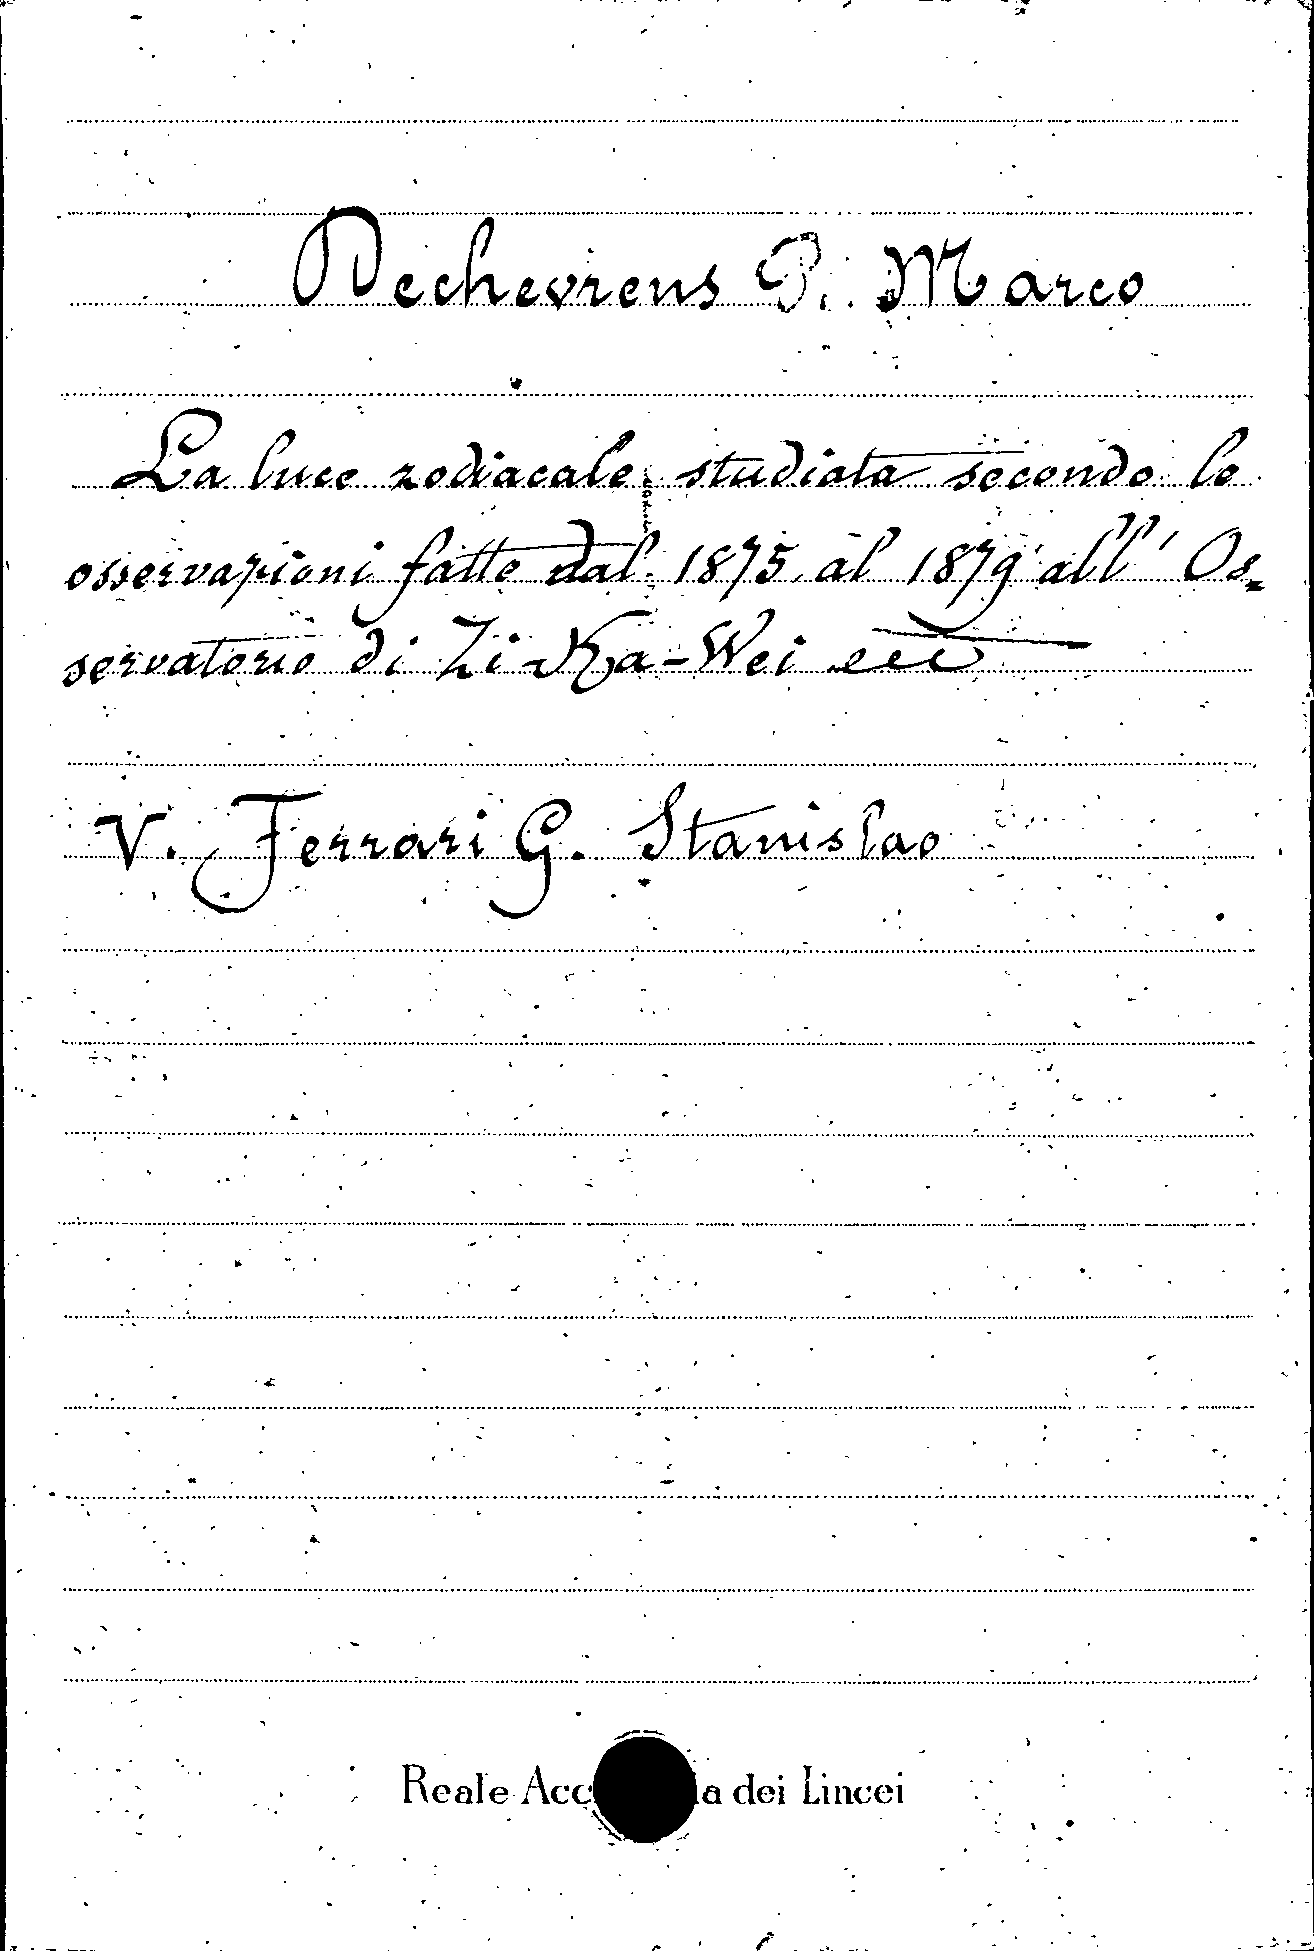 Dechevrens P. Marco
La luce zodiacale studiata secondo le
osservazioni fatte dal 1875 al 1879 all' Os-
servatorio di Zi-Ka-Wei ecc
V. Ferrari G. Stanislao
Reale Acc    ia dei Lincei